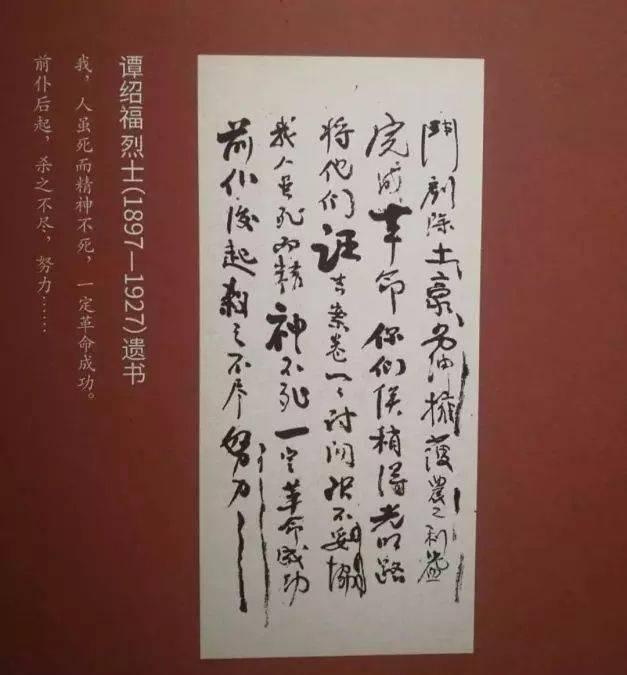 鬥剷除土豪擁護農利益
完成革命你们俟稍得光明路
将他们案卷一々討问决不妥協
我人虽死而精神不死一定革命成功
前仆後起殺之不尽努力
谭绍福烈士(1897—1927)遗书
我，人虽死而精神不死，一定革命成功。
前仆后起，杀之不尽，努力……